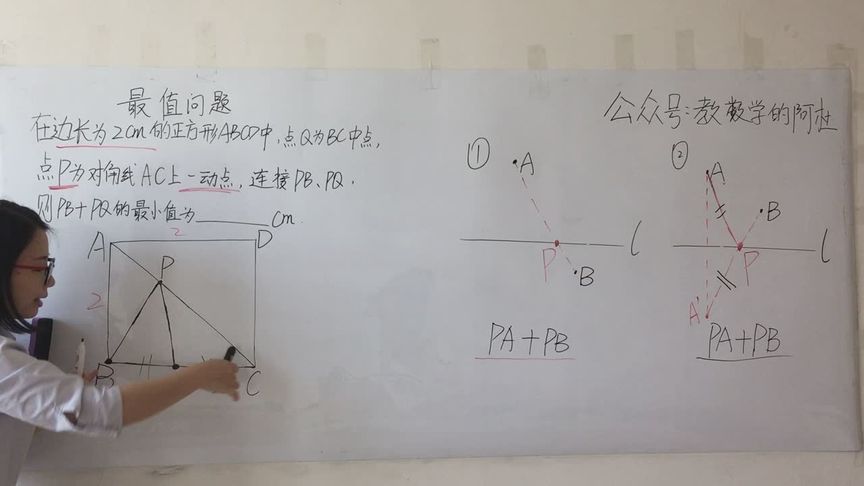 最值问题
在边长为2cm的正方形ABCD中,点Q为BC中点,
点P为对角线AC上一动点,连接PB、PQ.
则PB+PQ的最小值为______cm.
2
A
D
P
2
B
C
公众号:教数学的阿杜
①
A
P
B
l
PA+PB
②
A
B
P
l
A'
PA+PB